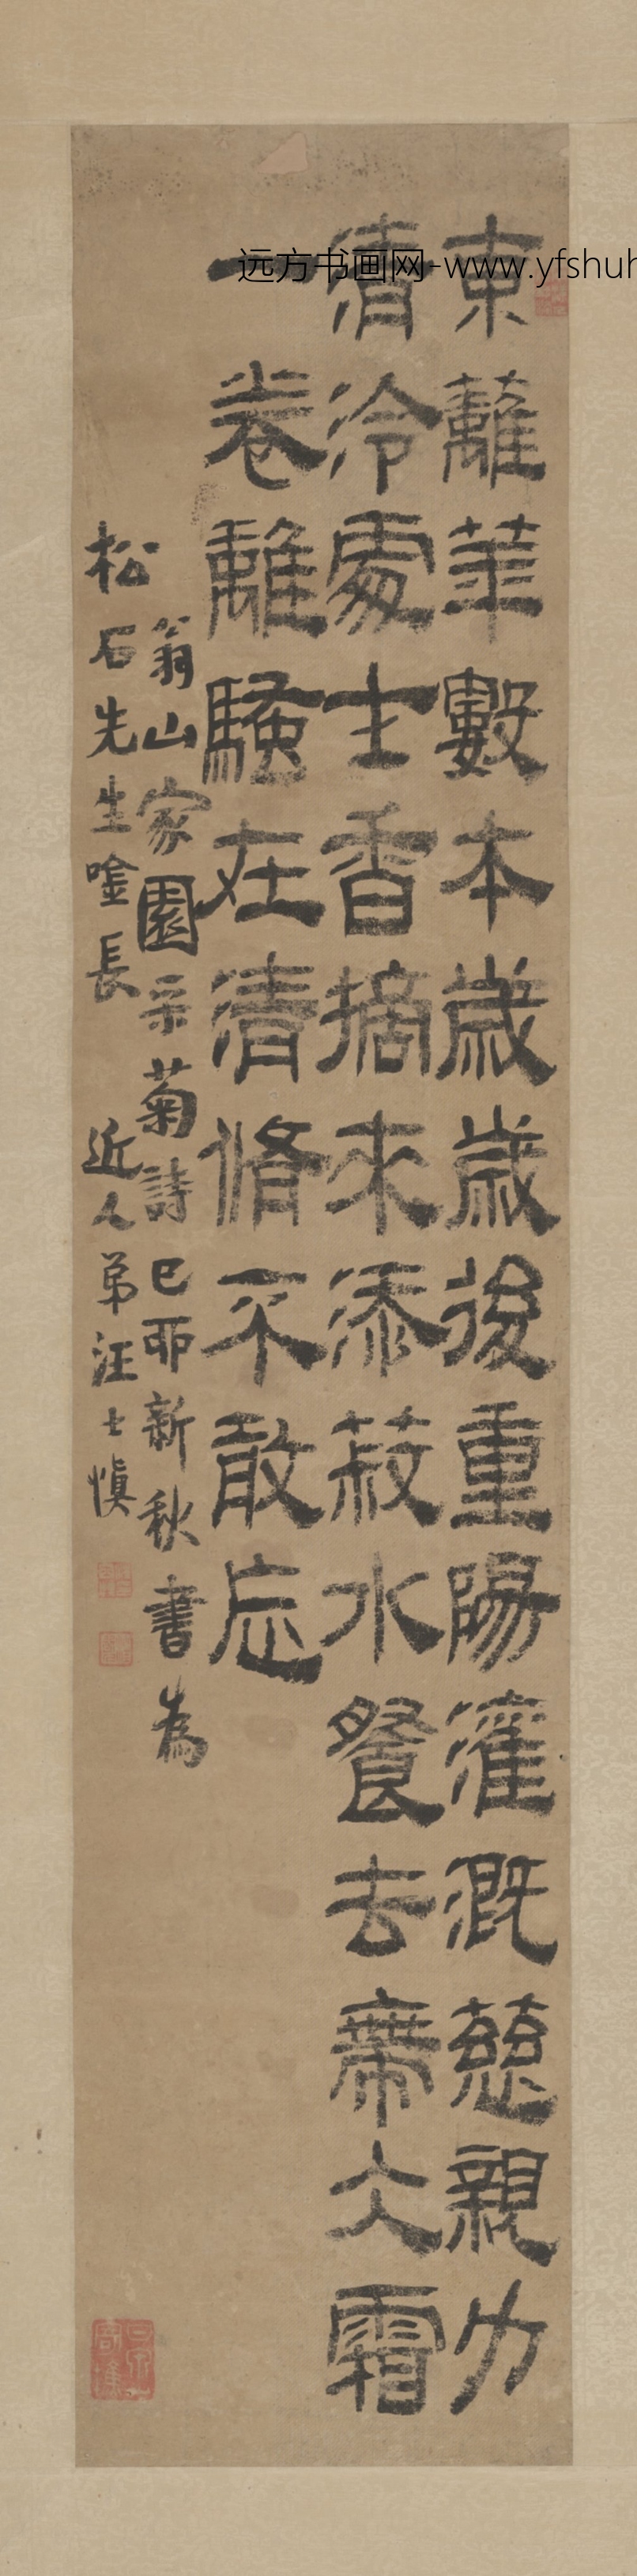 東蘺華數本歳歳後重陽灌溉慈親力
清泠處士香摘來添菽水餐去席大霜
一卷離騷在清脩不敢忘
翁山家園采菊詩己卯新秋書為
松石先生唫長 近人弟汪士慎
远方书画网-www.yfshuh